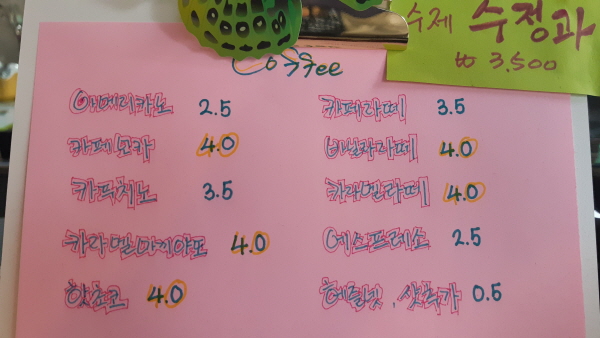 수제 수정과
₩ 3,500
Coffee
아메리카노 2.5
카페라떼 3.5
카페모카 4.0
바닐라라떼 4.0
카푸치노 3.5
카라멜라떼 4.0
카라멜마끼야또 4.0
에스프레소 2.5
핫초코 4.0
헤이즐넛, 샷추가 0.5